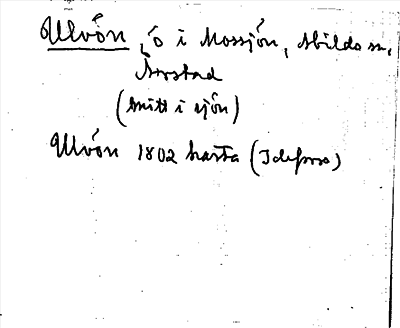 Ulvön, ö i Mossjön, Abildo sn,
Årstad
(mitt i sjön)
Ulvön 1802 karta (Idefors)